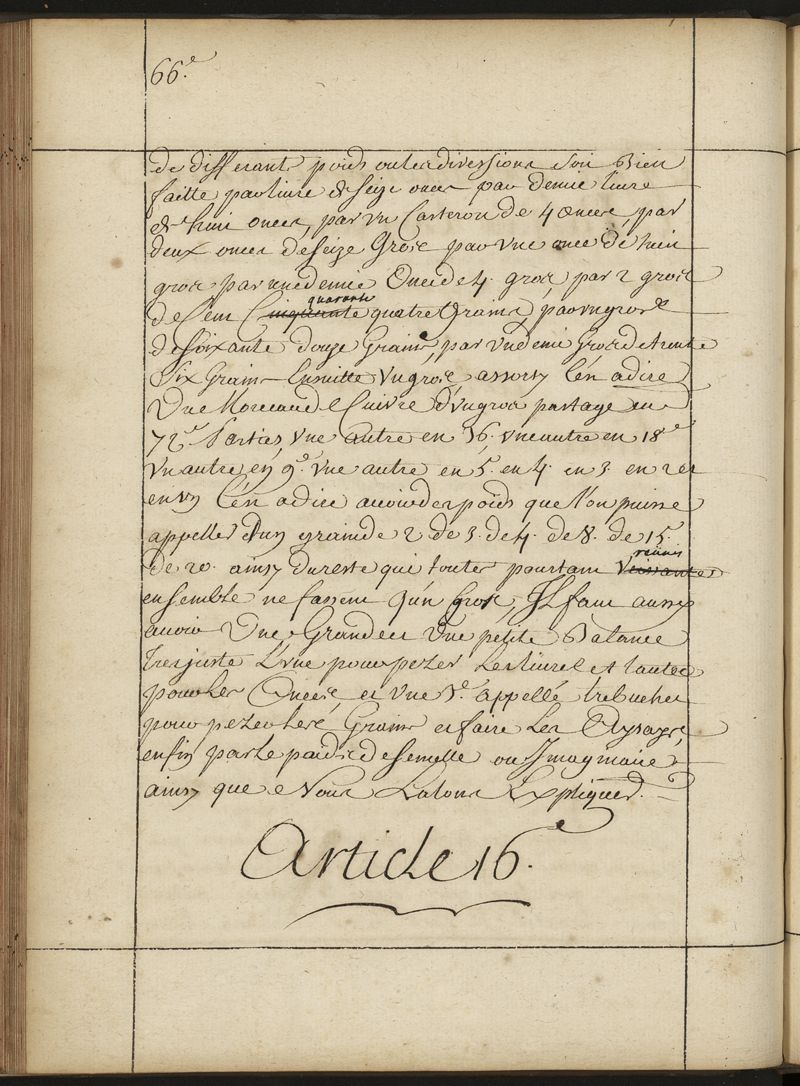 66.e
de differants poids ou les divissions soit Bien
faitte par livre de seize onces par demie livre
de huit onces, par un Carteron de 4 onces, par
deux onces de seize Gros par une once de huit
gros par une demie Once de 4. gros, par 2 gros
de Cent quarante quatre Grains, par un gros
de soixante douze Grains, par un demi Gros de trente
Six Grains Ensuitte un gros, assorty C'est a dire
Une Morceau de Cuivre d'un gros partage en
72.e Parties, une autre en 36. une autre en 18.e
un autre en 9.e une autre en 5. en 4. en 3. en 2 et
en un C'est a dire avoir des poids que l'on puisse
appeller d'un grain de 2 de 3. de 4. de 8. de 15.
de 20. ainsy du reste qui toutes pourtant réunis
ensemble ne fassent qu'un Gros, Il faut aussy
avoir Une Grande et Une petite Balance
tres juste L'une pour pezer Les livres et l'autre
pour Les Onces, et une 3.e appellé trebuchet
pour pezer les Grains et faire Les Essayes,
enfin par Le poids de semelle ou Imaginaire
ainsy que Nous L'alons Expliquer.
Article 16.e